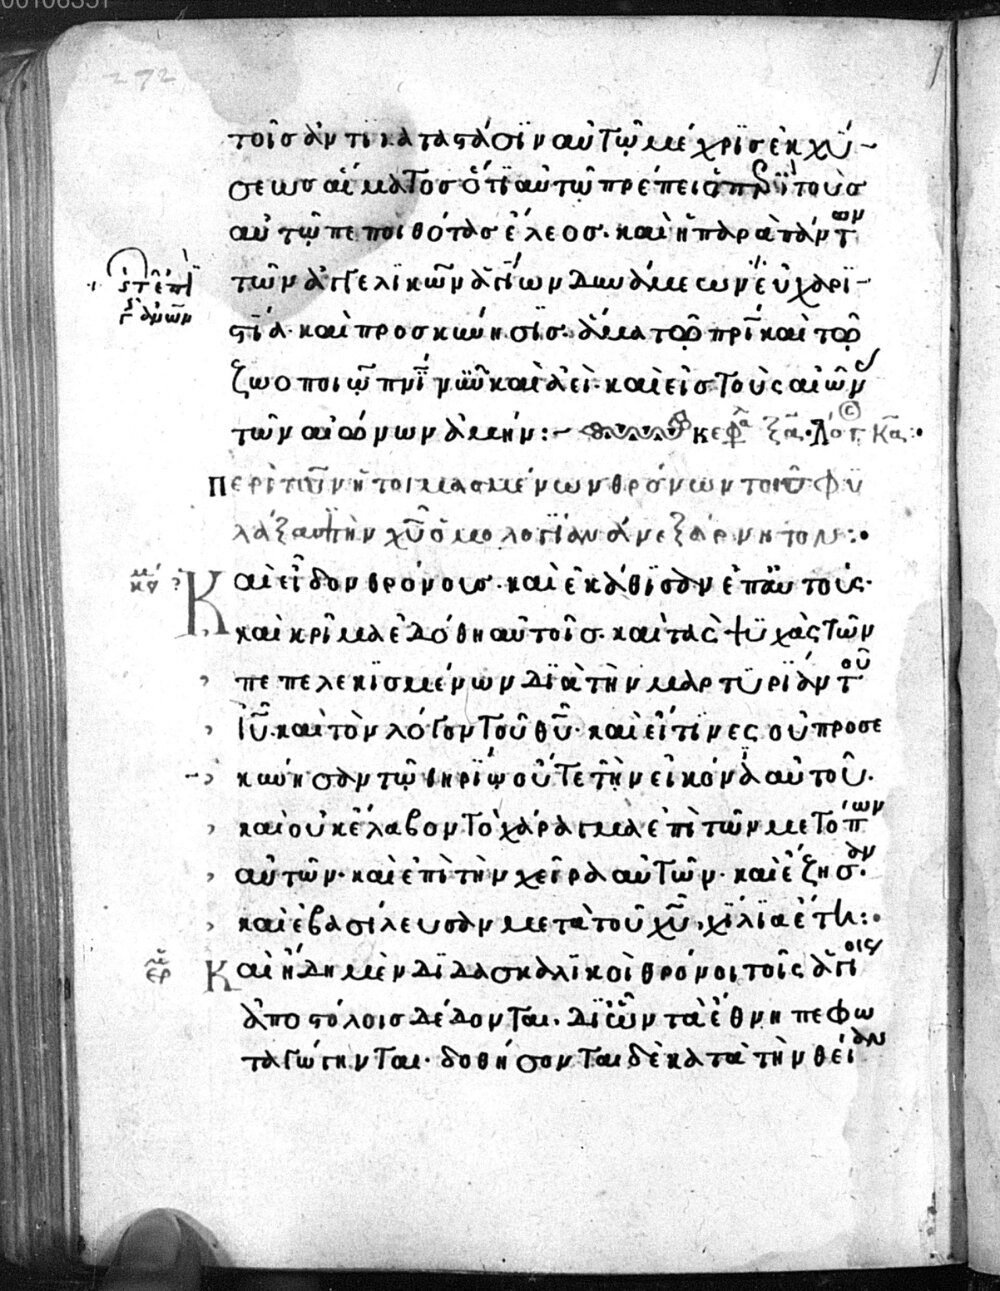 00106351
272
τοῖσ ἀντικαταστάσϊν αὐτῷ μέχρϊσ ἐκχύ-
σεωσ αἵματοσ ὅτϊ αὐτῷ πρέπει τοὺσ
αὐτῷ πεποιθότασ ἔλεοσ· καὶ ἡ παρὰ πάντων
τῶν ἀγγελϊκῶν ἁγίων δυνάμεων εὐχαρϊ-
στΐα· καὶ προσκύνησϊσ· ἅμα τῶ πρὶ καὶ τῶ
ζωοποιῶ πνΐ νῦν καὶ ἀεὶ· καὶ εἰσ τοὺς αἰῶνας
τῶν αἰώνων ἀμήν:– κεφα ξα· λόγ κα:·
Περὶ τῶν ἡτοιμασμένων θρόνων τοῖσ φυ
λάξασι τὴν χῦ ὁμολογΐαν ἀνεξάρνητον:·
κν
Καὶ εἶδον θρόνουσ· καὶ ἐκάθϊσαν ἐπ αὐτούς·
καὶ κρῖμα ἐδόθη αὐτοῖσ· καὶ τὰς ψϋχὰς τῶν
πεπελεκϊσμένων δϊὰ τὴν μαρτϋρΐαν τοῦ
ἰῦ· καὶ τὸν λόγον τοῦ θῦ· καὶ εἴτϊνες οὐ προσε
κύνησαν τῷ θηρΐῳ οὔτε τῂν εἰκόνα αὐτοῦ·
καὶ οὐκ ἔλαβον τὸ χάραγμα ἐπὶ τῶν μετόπων
αὐτῶν· καὶ ἐπὶ τὴν χεῖρα αὐτῶν· καὶ ἔζησαν
καὶ ἐβασίλευσαν μετὰ τοῦ χῦ, χΐλϊα ἔτη:·
ερ
Καὶ ἤδη μὲν δϊδασκαλϊκοὶ θρόνοι τοῖς ἁγίοις
ἀποστόλοισ δέδονται· δϊ ὧν τὰ ἔθνη πεφω
ταγώγηνται· δοθήσονται δὲ κατὰ τὴν θείαν